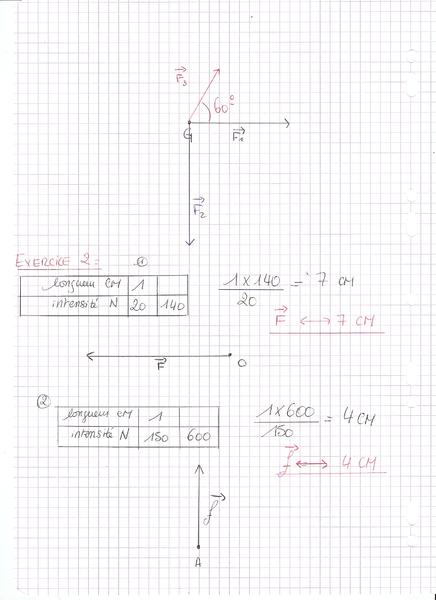 F₃
60°
G
F₁
F₂
EXERCICE 2 =
①
longueur CM 1
intensité N 20 140
1 x 140 / 20 = 7 CM
F ↔ 7 CM
F
O
②
longueur CM 1
intensité N 150 600
1 x 600 / 150 = 4 CM
f ↔ 4 CM
f
A